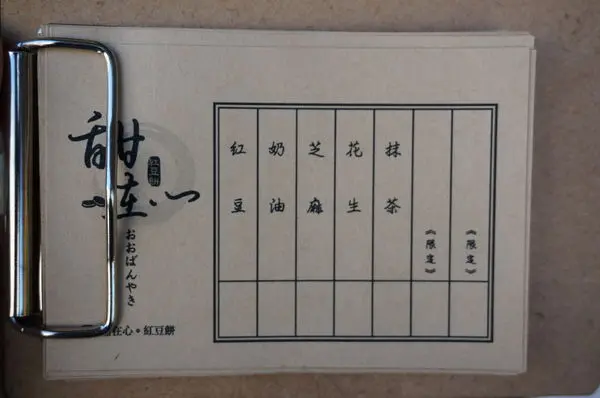 甜在心
紅豆餅
おおばんやき
在心。紅豆餅
紅豆
奶油
芝麻
花生
抹茶
《限定》
《限定》